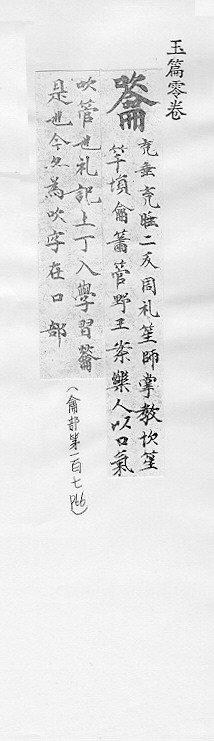 玉篇零卷
龡
充垂充睡二反周礼笙師掌教吹笙
竽塤龠簫管野王案樂人以口氣
吹管也礼記上丁入學習龡
是也今亦為吹字在口部
(龠部第一百七 P66)